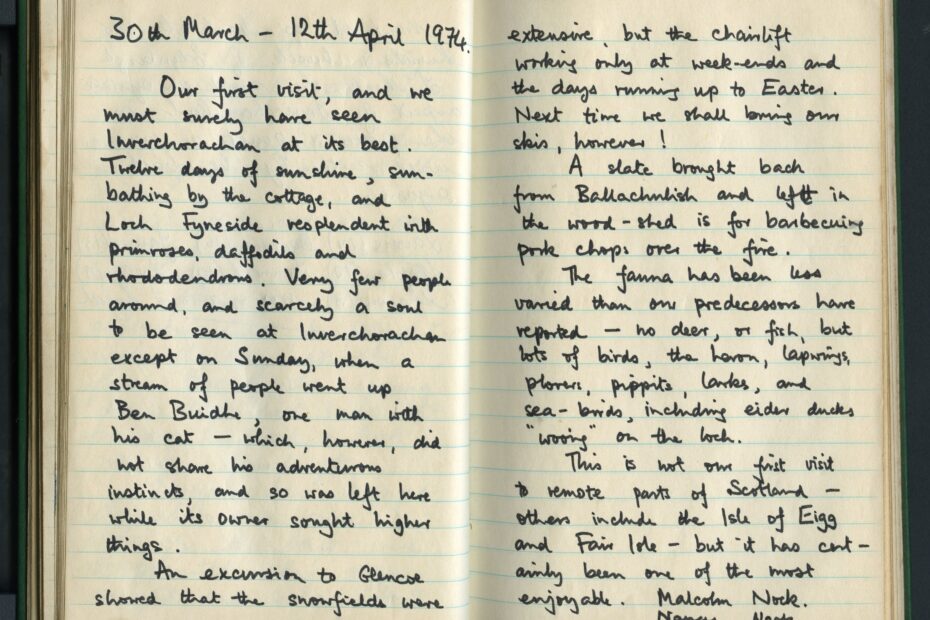 30th March – 12th April 1974.
Our first visit, and we
must surely have seen
Inverchorachan at its best.
Twelve days of sunshine, sun-
bathing by the cottage, and
Loch Fyneside resplendent with
primroses, daffodils and
rhododendrons. Very few people
around, and scarcely a soul
to be seen at Inverchorachan
except on Sunday, when a
stream of people went up
Ben Buidhe, one man with
his cat – which, however, did
not share his adventurous
instincts, and so was left here
while its owner sought higher
things.
An excursion to Glencoe
showed that the snowfields were
extensive, but the chairlift
working only at week-ends and
the days running up to Easter.
Next time we shall bring our
skis, however!
A slate brought back
from Ballachulish and left in
the wood-shed is for barbecuing
pork chops over the fire.
The fauna has been less
varied than our predecessors have
reported – no deer, or fish, but
lots of birds, the heron, lapwings,
plovers, pippits, larks, and
sea-birds, including eider ducks
"wooing" on the loch.
This is not our first visit
to remote parts of Scotland –
others include the Isle of Eigg
and Fair Isle – but it has cert-
ainly been one of the most
enjoyable. Malcolm Nock.